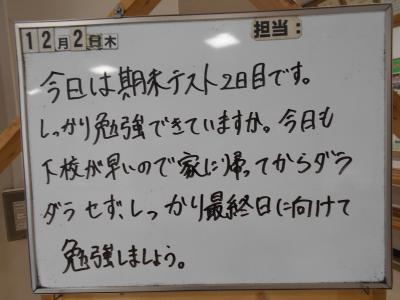 12月2日木
担当：
今日は期末テスト2日目です。
しっかり勉強できていますか。今日も
下校が早いので家に帰ってからダラ
ダラせず、しっかり最終日に向けて
勉強しましょう。